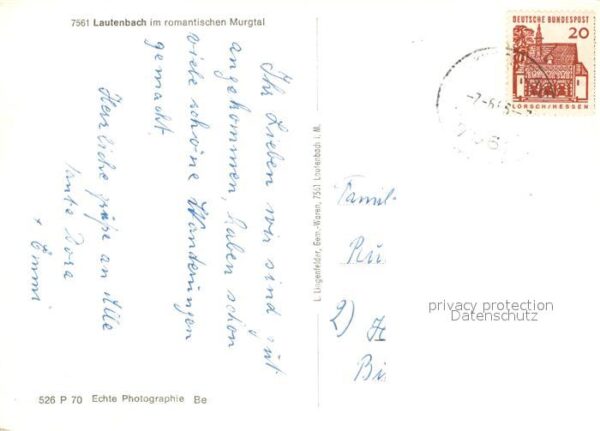 7561 Lautenbach im romantischen Murgtal
Ihr Lieben wir sind gut
angekommen, haben schon
viele schöne Wanderungen
gemacht.
Herrliche grüße an Alle
tante Dora
+ Emmi
526 P 70 Echte Photographie Be
L. Lingenfelder, Gem.-Waren, 7561 Lautenbach i. M.
DEUTSCHE BUNDESPOST
20
LORSCH/HESSEN
Famil
Ru
2)
Bi
privacy protection
Datenschutz